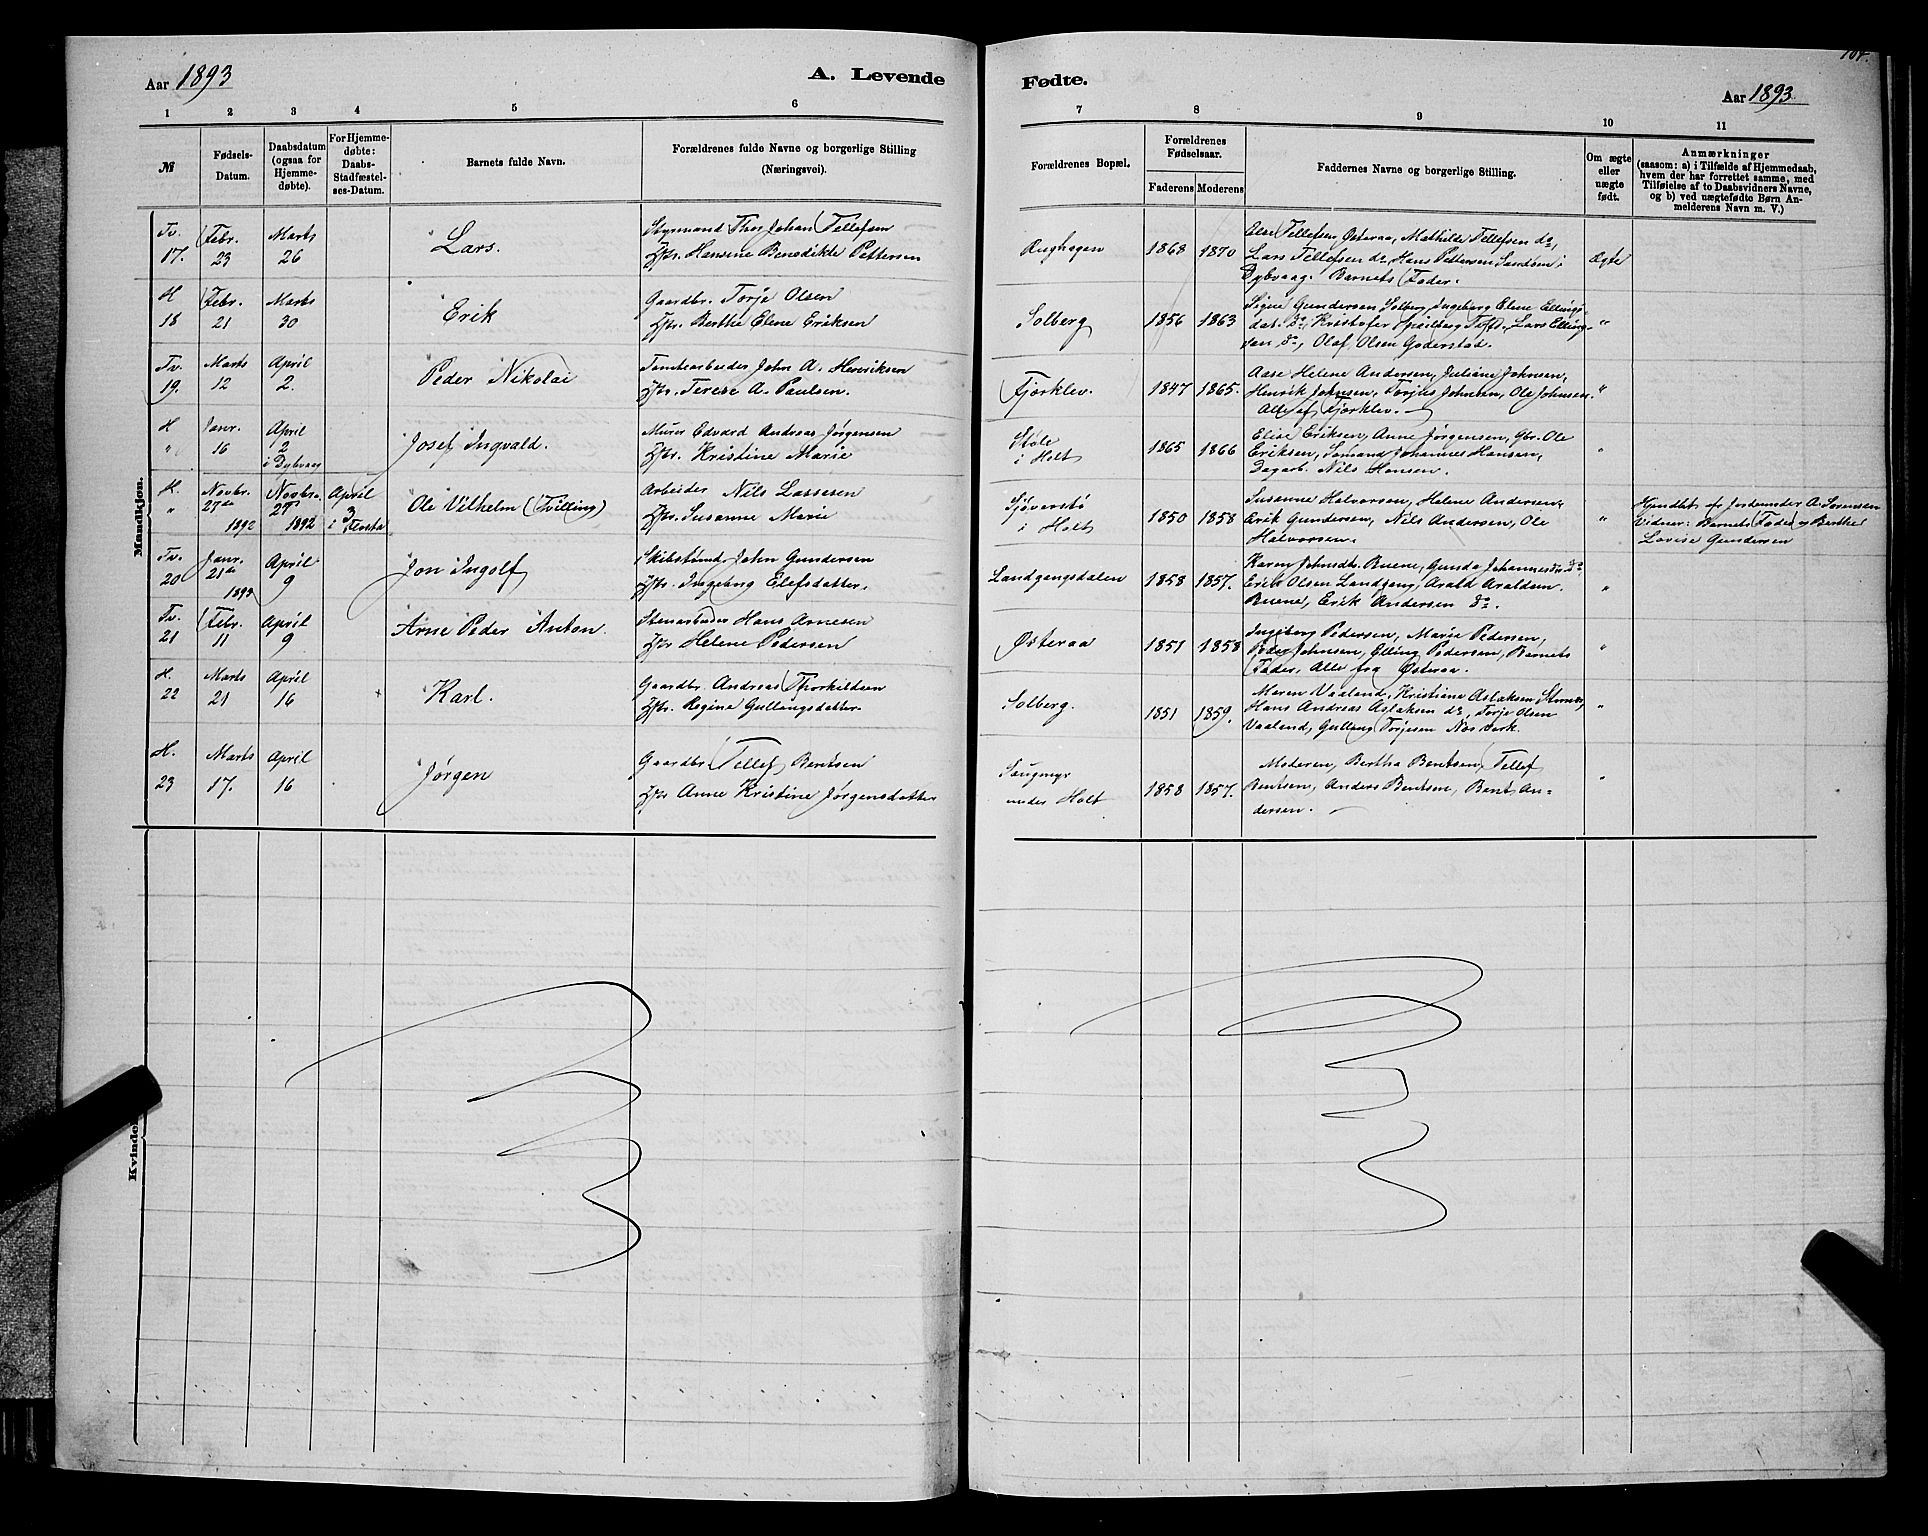 Aar 1893
A. Levende
1 2 3 4 5 6
№
Fødsels-
Datum.
Daabsdatum
(ogsaa for
Hjemme-
døbte).
For Hjemme-
døbte:
Daabs-
Stadfæstel-
ses-Datum.
Barnets fulde Navn.
Forældrenes fulde Navne og borgerlige Stilling
(Næringsvei).
Mandkjøn.
Tv. Febr. Marts Styrmand Thor Johan Tellefsen
17. 23 26 Lars. Hst. Hansine Benedikte Pettersen
H Febr. Marts Gaardbr. Torje Olsen
18 21 30 Erik Hst. Berthe Elene Eriksen
Tv. Marts April Tomtearbeider John A. Henriksen
19. 12 2. Peder Nikolai Hst. Terese A. Paulsen.
H Janr. April Murer Edvard Andreas Jørgensen
" 16 2 Josef Ingvald. Hst. Kristine Marie
i Dybvaag
H. Novbr. Novbr. April Arbeider Nils Lassesen
" 27de 27 3 Ole Vilhelm (Tvilling) Hst. Susanne Marie
1892 1892 i Flosta
Tv. Janr. April Skibstømd. John Gundersen
20 21de 9 Jon Ingolf Hst. Ingeborg Elefsdatter.
1893
Tv. Febr. April Stenarbeider Hans Arnesen
21 11 9 Arne Peder Anton. Hst. Helene Pedersen
H. Marts April Gaardbr. Andreas Thorkildsen
22 21 16 Karl. Hst. Regine Gullangsdatter.
H. Marts April Gaardbr. Tellef Bentsen
23 17. 16 Jørgen Hst. Anne Kristine Jørgensdatter
Kvinde
Fødte.
Aar 1893.
7 8 9 10 11
Forældrenes Bopæl.
Forældrenes
Fødselsaar.
Faderens Moderens
Faddernes Navne og borgerlige Stilling.
Om ægte
eller
uægte
født.
Anmærkninger
(saasom: a) i Tilfælde af Hjemmedaab,
hvem der har forrettet samme, med
Tilføielse af to Daabsvidners Navne,
og b) ved uægtefødte Børn An-
melderens Navn m. V.)
Else Tellefsen Østeraa, Mathilde Tellefsen do,
1868 1870 Lars Tellefsen do, Hans Pettersen Sandøen i Ægte
Dybvaag. Barnets Fader.
Signe Gundersen Solberg, Ingeborg Elene Ellings-
Solberg 1856 1863 dat. do, Kristofer Tveit, Lars Elling- "
sen do, Olaf Olsen Goderstad.
Aase Helene Andersen, Juliane Johnsen,
Fjærklev. 1847 1865. Henrik Johnsen, Torjus Johnsen, Ole Johnsen. "
Alle af Fjærklev.
Støle Elise Eriksen, Anne Jørgensen, Gbr. Ole
i Holt 1865 1866 Eriksen, Sømand Johannes Hansen, "
Dagarb. Nils Hansen.
Sjøverstø Susanne Halvorsen, Helene Andersen,
i Holt 1850 1858 Erik Gundersen, Nils Andersen, Ole "
Halvorsen.
Hjmdbt. af Jordemoder A. Sørensen
Vidner: Barnets Fader og Berthe
Lovise Gundersen
Karen Johnsdt. Buene, Gunda Johannesdr. do.
Landgangsdalen 1858 1857. Erik Olsen Landgang, Arald Araldsen "
Buene, Erik Andersen do.
Ingeborg Pedersen, Marie Pedersen,
Østeraa 1851 1858 Peder Johnsen, Elling Pedersen, Barnets "
Fader, Alle fra Østeraa.
Maren Vaaland, Kristiane Aslaksen,
Solberg. 1851 1859. Hans Andreas Aslaksen do, Torje Olsen "
Vaaland, Gullang Torjesen Næs Verk.
Saugmyr Moderen, Bertha Bentsen, Tellef
under Holt 1858 1857. Bentsen, Anders Bentsen, Bent An- "
dersen.